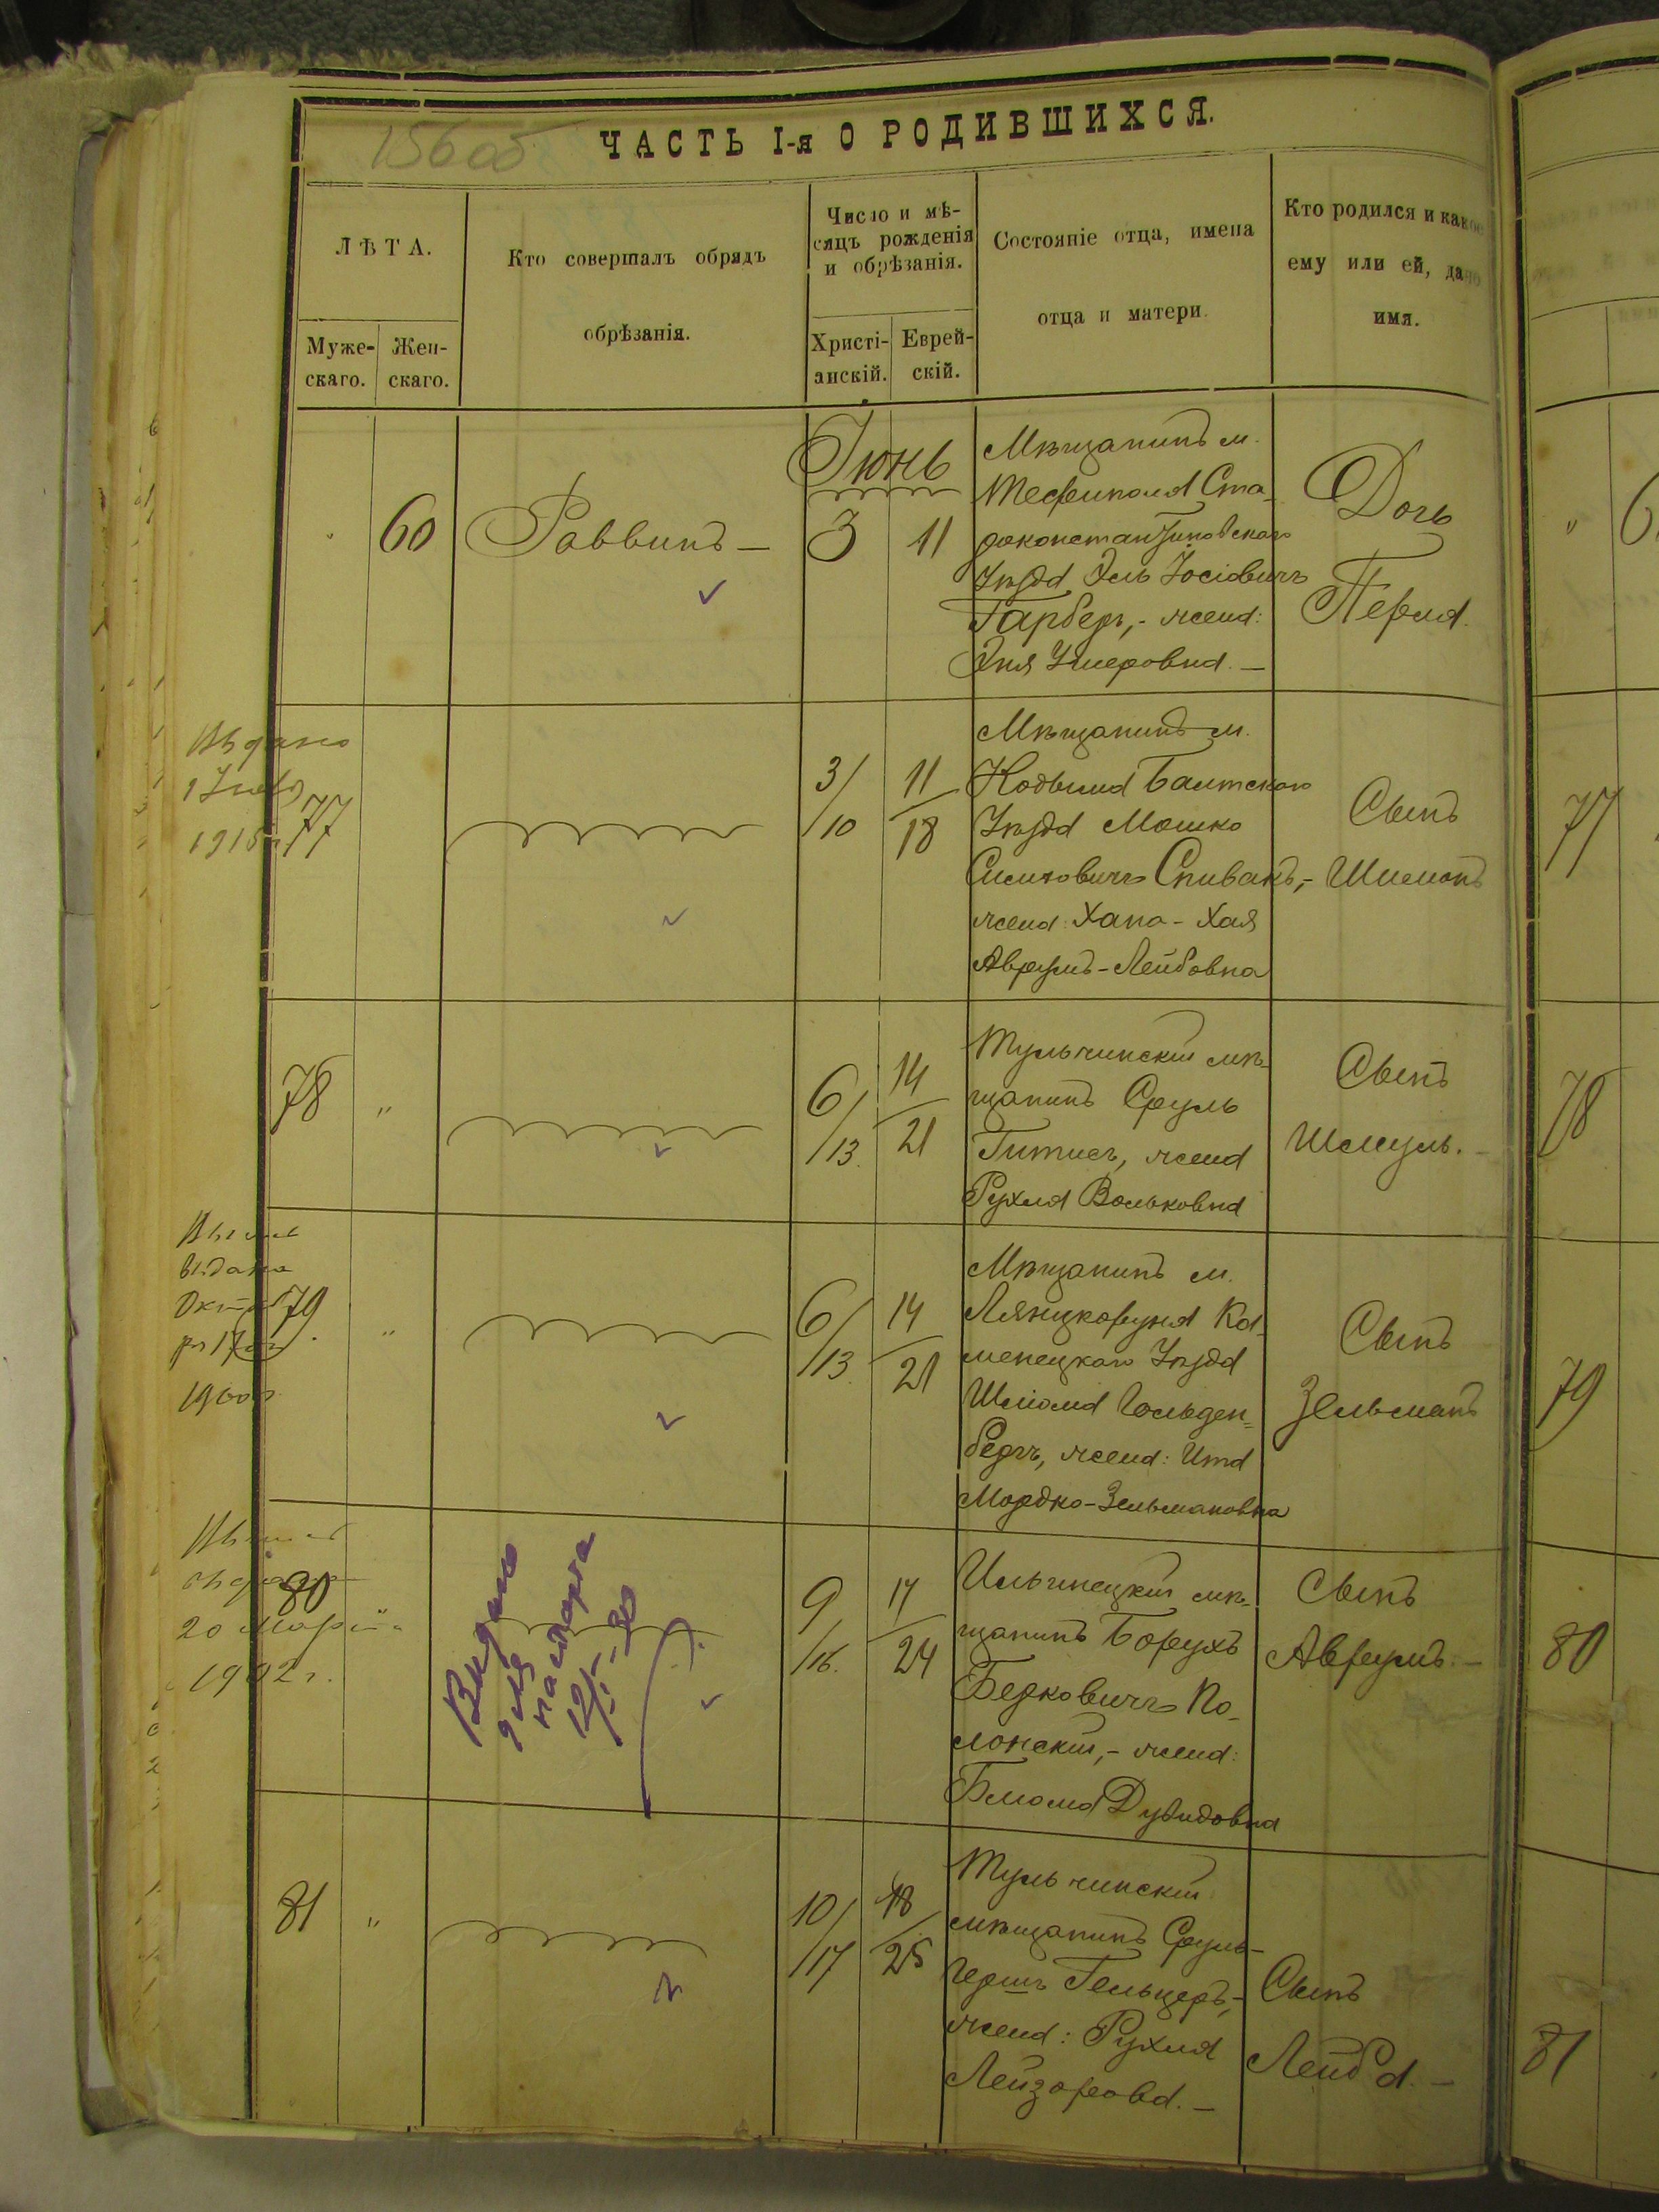 156 об
ЧАСТЬ I-я О РОДИВШИХСЯ.
ЛѢТА.
Муже-
скаго.
Жен-
скаго.
Кто совершалъ обрядъ
обрѣзанія.
Число и мѣ-
сяцъ рожденія
и обрѣзанія.
Христі-
анскій.
Еврей-
скій.
Состояніе отца, имена
отца и матери.
Кто родился и какое
ему или ей, дано
имя.
Іюнь
60
Раввинъ —
3
11
Мѣщанинъ м.
Теофиполя Ста-
роконстантиновскаго
Уѣзда Эль Іосіовичъ
Гарберъ,- жена:
Эня Умеровна. —
Дочь
Перля.
"
Выдано
1915
77
3/10
11/18
Мѣщанинъ м.
Кодыма Балтскаго
Уѣзда Мошко
Симховичъ Спивакъ,-
жена: Хана - Хая
Аврумъ-Лейбовна
Сынъ
Шимонъ
77
78
"
6/13.
14/21
Тульчинскій мѣ-
щанинъ Сруль
Гитисъ, жена
Рухля Вольковна
Сынъ
Шмуль. -
78
выдана
79
"
1900 г.
6/13.
14/21
Мѣщанинъ м.
Лянцкоруня Ка-
менецкаго Уѣзда
Шліома Гольден=
бергъ, жена: Ита
Мордко-Зельмановна
Сынъ
Зельманъ
79
80
20 Марта
1902 г.
Видано
для
паспорта
9/16.
17/24
Ильинецкій мѣ-
щанинъ Борухъ
Берковичъ По-
лонскій,- жена:
Блюма Дувидовна
Сынъ
Аврумъ. —
80
81
"
10/17
18/25
Тульчинскій
мѣщанинъ Сруль-
Гершъ Гельцеръ,-
жена: Рухля
Лейзорова. —
Сынъ
Лейба. —
81